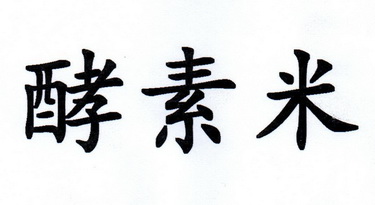 酵素米